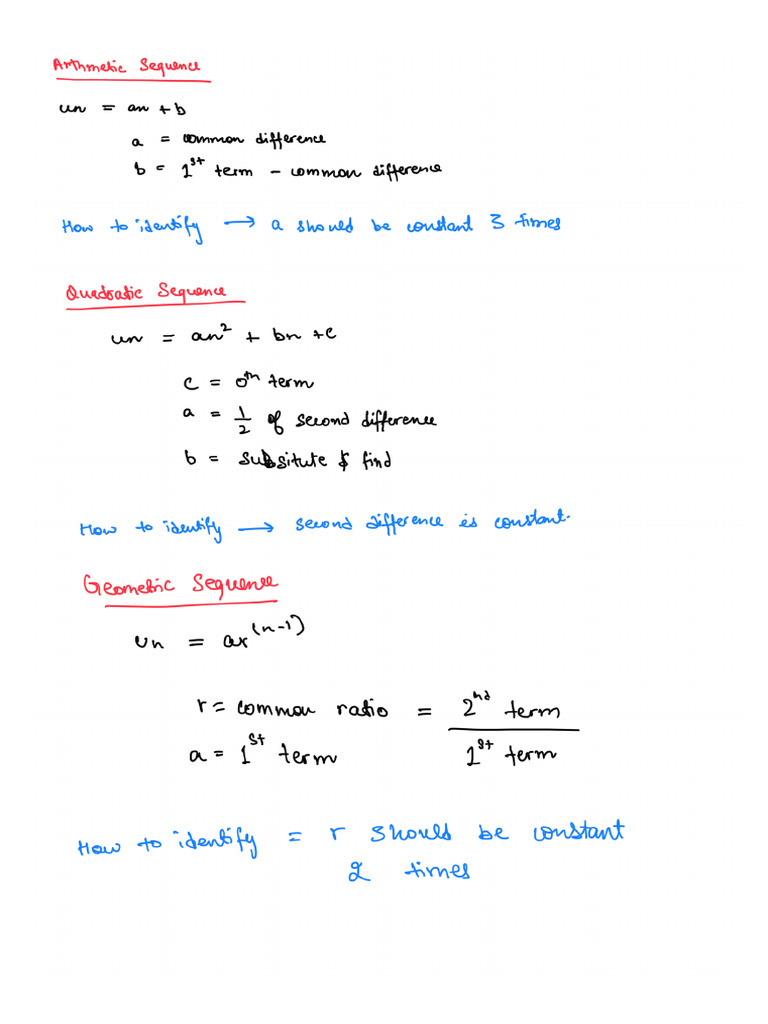 Arthmetic Sequence
un = an + b
a = common difference
b = 1st term - common difference
How to identify → a should be constant 3 times
Quadratic Sequence
un = an² + bn + c
c = 0th term
a = 1/2 of second difference
b = subsitute & find
How to identify → second difference is constant.
Geometric Sequence
Un = ar^(n-1)
r = common ratio = 2nd term / 1st term
a = 1st term
How to identify = r should be constant
2 times